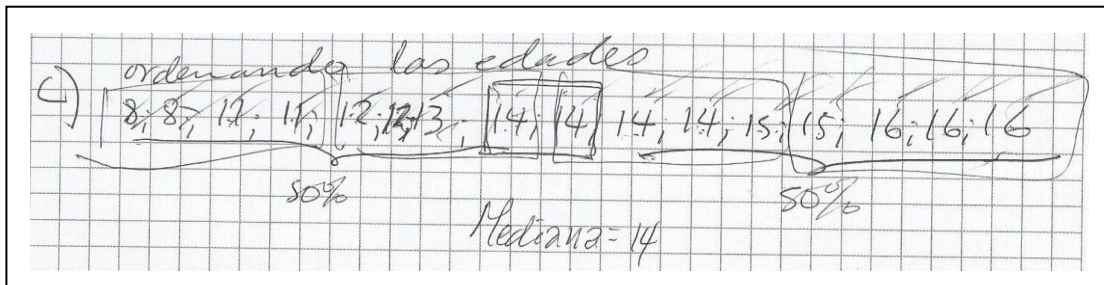 c) ordenando las edades
8; 8; 11; 11; 12; 12; 13; 14; 14; 14; 14; 15; 15; 16; 16; 16
50% 50%
Mediana = 14